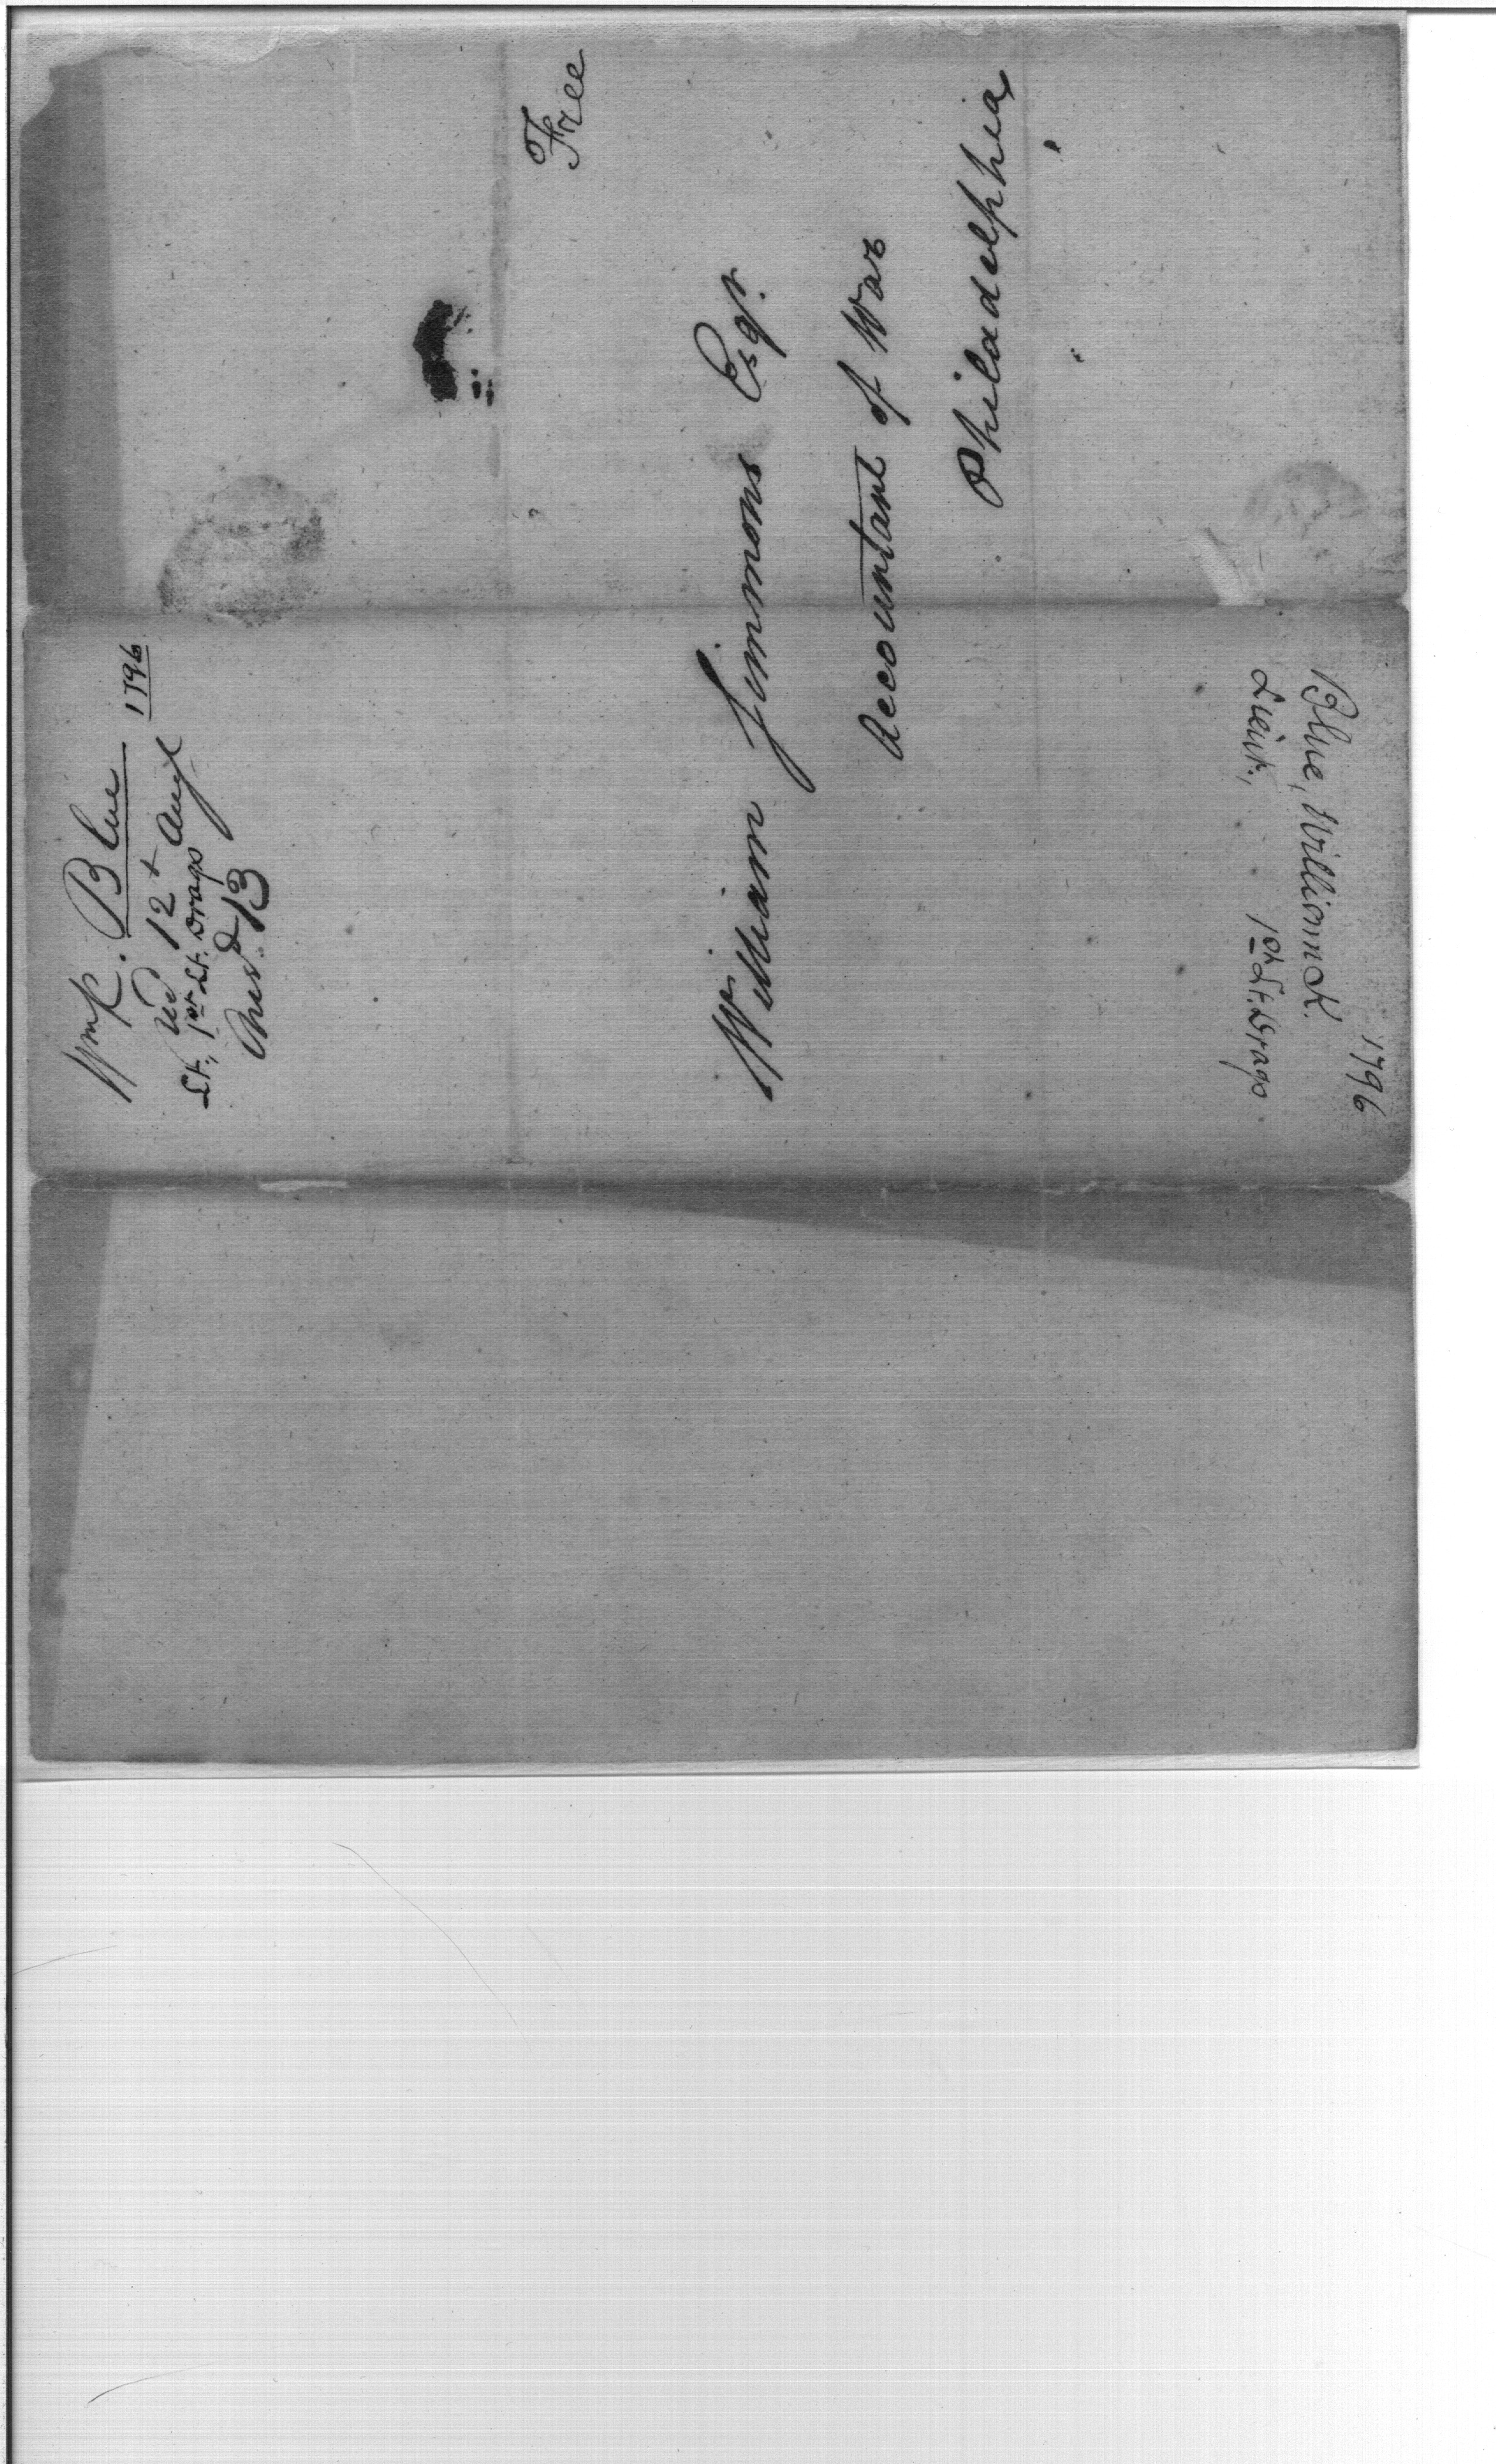 Wm K. Blue
1796
Recd 12t Augt
Lt., 1st Lt. Drags
Ansd 13
Free
William Simmons Esqr.
Accountant of War
Philadelphia
1796
Blue, William K.
Lieut., 1st Lt. Drags